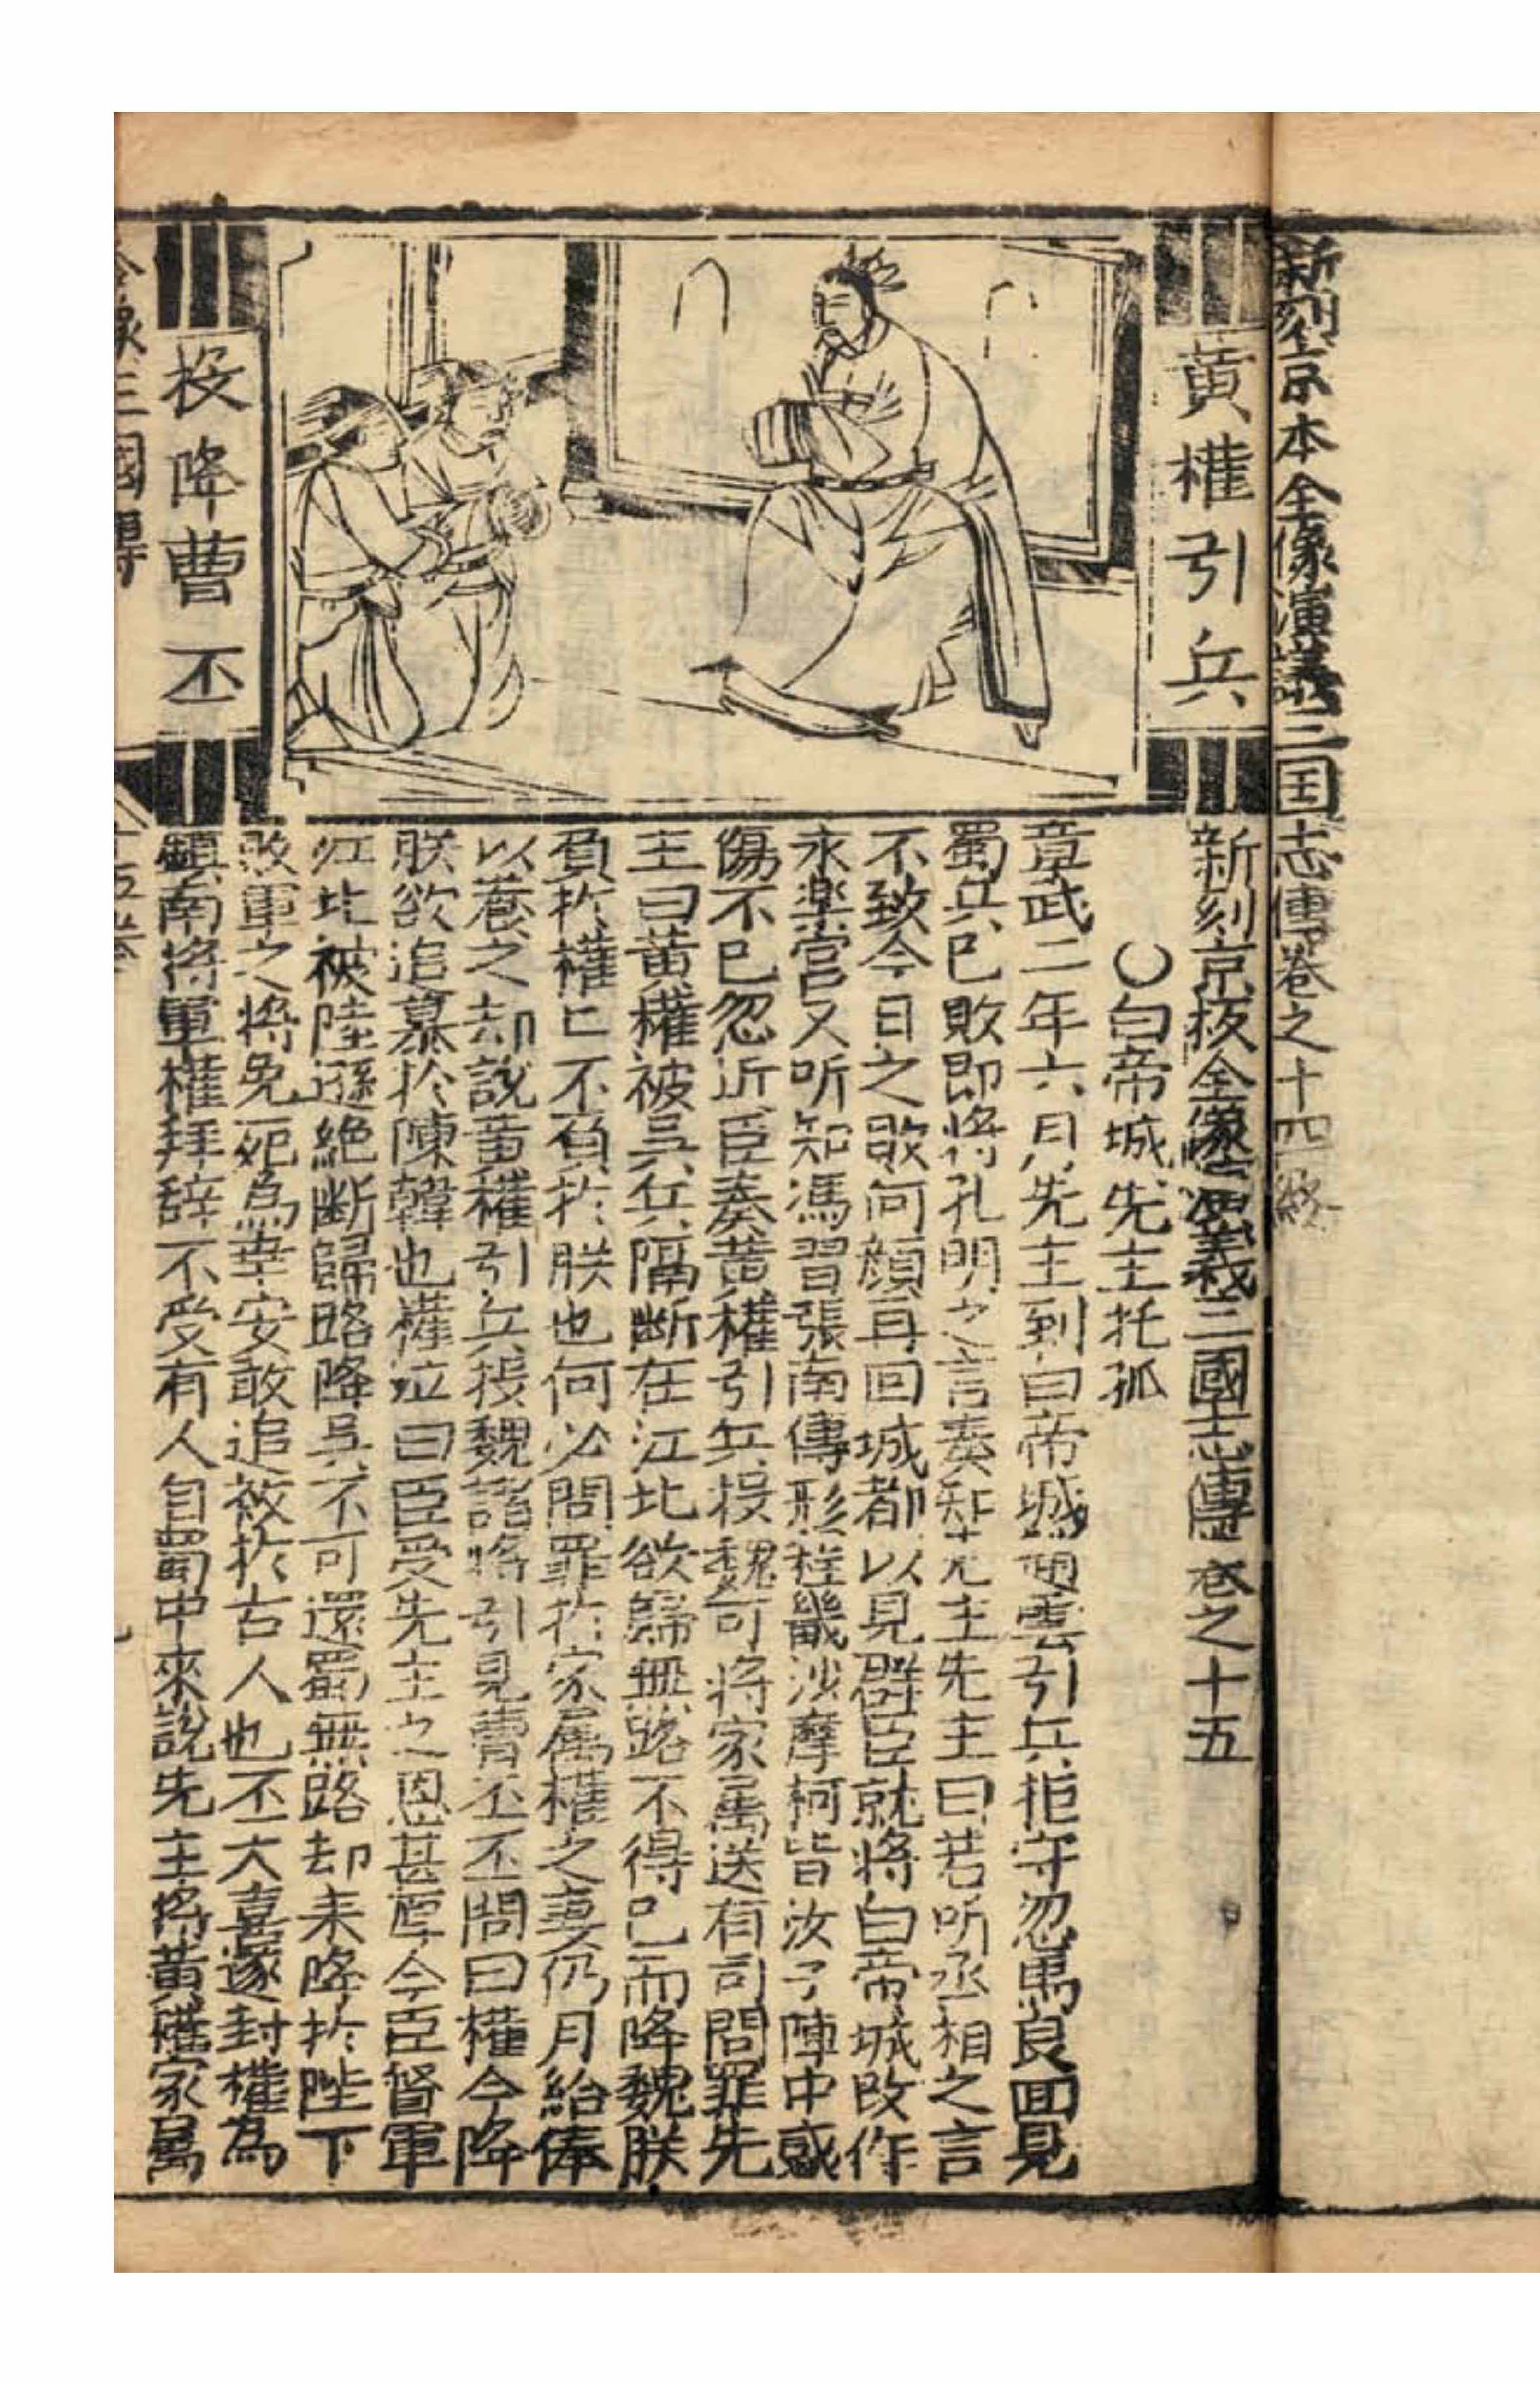 新刻京本全像演議三国志傳卷之十四終
黃權引兵
投降曹丕
新刻京板全像演義三國志傳卷之十五
〇白帝城先主托孤
章武二年六月先主到白帝城趙雲引兵拒守忽馬良回見
蜀兵已敗即將孔明之言奏知先主先主曰若听丞相之言
不致今日之敗何顔再回城都以見群臣就將白帝城改作
永楽宮又听知馮習張南傅肜程畿沙摩柯皆汝于陣中感
傷不已忽近臣奏黃權引兵投魏可將家属送有司問罪先
主曰黃權被吳兵隔断在江北欲歸無路不得已而降魏朕
負扵權匕不負扵朕也何必問罪扵家属權之妻仍月給俸
以養之却說黃權引兵投魏諸將引見曹丕丕問曰權今降
朕欲追慕扵陳韓也權泣曰臣受先主之恩甚厚今臣督軍
江北被陸遜絶断歸路降吳不可還蜀無路却来降扵陛下
敗軍之將免死為幸安敢追扵古人也丕大喜遂封權為
鎮南將軍權拜辞不受有人自蜀中來說先主將黃權家属
全像三國傳
十五卷